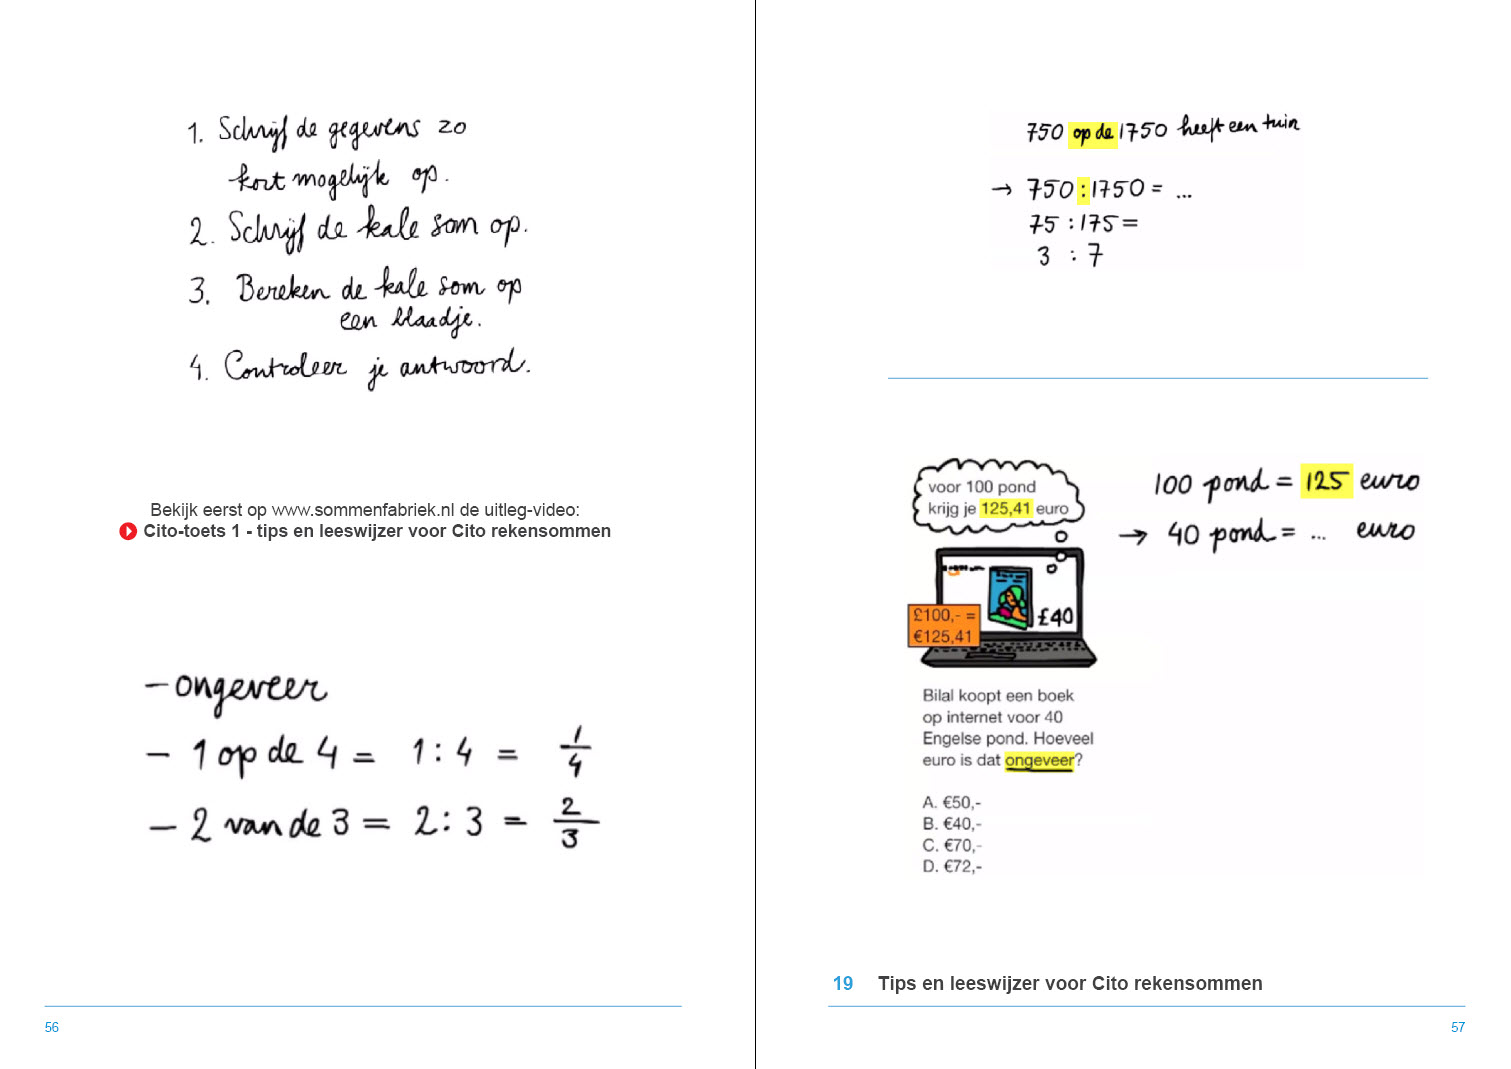 1. Schrijf de gegevens zo
kort mogelijk op.
2. Schrijf de kale som op.
3. Bereken de kale som op
een blaadje.
4. Controleer je antwoord.
Bekijk eerst op www.sommenfabriek.nl de uitleg-video:
Cito-toets 1 - tips en leeswijzer voor Cito rekensommen
- ongeveer
- 1 op de 4 = 1 : 4 = 1/4
- 2 van de 3 = 2 : 3 = 2/3
56
750 op de 1750 heeft een tuin
→ 750 : 1750 = ...
75 : 175 =
3 : 7
voor 100 pond
krijg je 125,41 euro
£40
£100,- =
€125,41
100 pond = 125 euro
→ 40 pond = ... euro
Bilal koopt een boek
op internet voor 40
Engelse pond. Hoeveel
euro is dat ongeveer?
A. €50,-
B. €40,-
C. €70,-
D. €72,-
19 Tips en leeswijzer voor Cito rekensommen
57